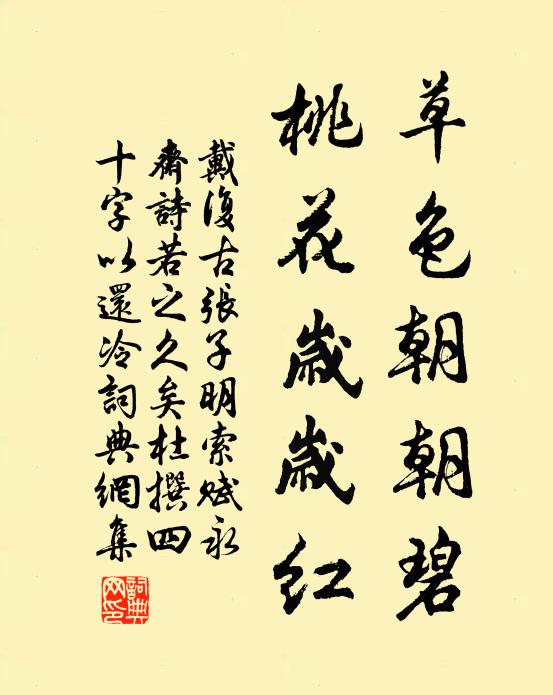 草色朝朝碧
桃花歲歲紅
戴復古張子明索賦永
齋詩若之久矣杜撰四
十字以還冷詞典網集
詞典